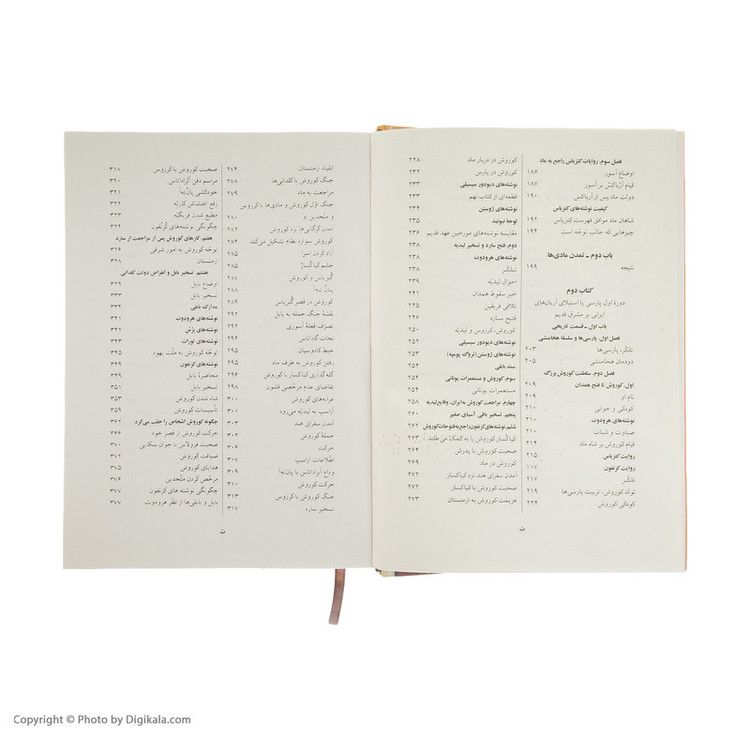 فصل سوم. روایات کتزیاس راجع به ماد
اوضاع آسور ۱۸۶
قیام آرباکِس بر آسور ۱۸۷
دولت ماد پس از آرباکس ۱۹۰
کیفیت نوشته‌های کتزیاس
شاهان ماد موافق فهرست کتزیاس ۱۹۲
چیزهایی که جالب توجّه است ۱۹۴
باب دوم ــ تمدن مادی‌ها
نتیجه ۱۹۹
کتاب دوم
دورهٔ اول پارسی یا استیلای آریان‌های
ایرانی بر مشرق قدیم
باب اول ــ قسمت تاریخی
فصل اول. پارسی‌ها و سلسلهٔ هخامنشی
تذکّر، پارسی‌ها ۲۰۳
دودمان هخامنشی ۲۰۵
فصل دوم. سلطنت کوروش بزرگ
اول. کوروش تا فتح همدان ۲۰۹
نام او ۲۰۹
کودکی و جوانی ۲۱۰
نوشته‌های هرودوت ۲۱۰
صباوت و شباب ۲۱۰
قیام کوروش بر شاه ماد ۲۱۴
روایت کتزیاس ۲۱۵
روایت کزنفون ۲۱۷
تذکّر ۲۱۷
تولد کوروش، تربیت پارسی‌ها ۲۱۹
کودکی کوروش ۲۲۴
کوروش در دربار ماد ۲۲۸
کوروش در پارس ۲۳۲
نوشته‌های دیودور سیسیلی ۲۳۳
قطعه‌ای از کتاب نهم ۲۳۳
نوشته‌های ژوستن ۲۳۴
لوحهٔ نبونید ۲۳۵
مقایسه نوشته‌های مورخین عهد قدیم ۲۳۶
دوم. فتح سارد و تسخیر لیدیه ۲۳۸
نوشته‌های هرودوت ۲۳۸
تذکّر ۲۳۸
احوال لیدیّه ۲۳۹
خبر سقوط همدان ۲۴۱
تلاقی فریقین ۲۴۵
فتح سارد ۲۴۶
کوروش، کرزوس و لیدیّه ۲۵۰
نوشته‌های دیودور سیسیلی ۲۵۳
نوشته‌های ژوستن (تروگ پومپه) ۲۵۳
سند بابلی ۲۵۴
سوم. کوروش و مستعمرات یونانی ۲۵۴
مستعمرات یونانی ۲۵۴
چهارم. مراجعت کوروش به ایران، وقایع لیدیه ۲۵۸
پنجم. تسخیر باقی آسیای صغیر ۲۶۰
ششم. نوشته‌های کزنفون راجع به فتوحات کوروش ۲۶۲
کیاکسار کوروش را به کمک می‌طلبد ۲۶۳
صحبت کوروش با پدرش ۲۶۴
کوروش در ماد ۲۶۹
آمدن سفرای هند نزد کیاکسار ۲۷۲
صحبت کوروش با کیاکسار ۲۷۲
عزیمت کوروش به ارمنستان ۲۷۳
ت
انقیاد ارمنستان ۲۷۴
جنگ کوروش با کلدانی‌ها ۲۷۸
مراجعت به ماد ۲۷۹
جنگ اوّل کوروش و مادی‌ها با کرزوس
و متّحدین او ۲۸۱
آمدن گرگانی‌ها نزد کوروش ۲۸۲
کوروش سواره نظام تشکیل می‌کند ۲۸۴
آزاد کردن اسرا ۲۸۵
خشم کیاکْسار ۲۸۵
گبریاس و کوروش ۲۸۸
پان‌ته‌آ ۲۸۸
کوروش در قصر گبریاس ۲۸۹
نقشهٔ جنگ، حمله به بابل ۲۹۱
تصرّف قلعهٔ آسوری ۲۹۲
نجات گاداتاس ۲۹۵
خبط کادوسیان ۲۹۵
رفتن کوروش به طرف ماد ۲۹۵
گله‌گذاری کیاکسار با کوروش ۲۹۶
تقاضای عدم مرخّصی قشون ۲۹۸
عرابه‌های کوروش ۳۰۰
آراسپ به لیدیّه می‌رود ۳۰۱
آمدن سفرای هند ۳۰۳
حملهٔ کوروش ۳۰۴
حرکت ۳۰۶
اطّلاعات آراسپ ۳۰۷
وداع آبراداتاس با پان‌ته‌آ ۳۰۹
حرکت کوروش ۳۱۰
جنگ کوروش با کرزوس ۳۱۳
تسخیر سارد ۳۱۷
صحبت کوروش با کرزوس ۳۱۸
مراسم دفن آبراداتاس ۳۲۰
خودکشی پان‌ته‌آ ۳۲۱
رفع اغتشاش کاریّه ۳۲۲
مطیع شدن فریگیّه ۳۲۳
چگونگی نوشته‌های کزنفون ۳۲۴
هفتم. کارهای کوروش پس از مراجعت از سارد
توجّه کوروش به امور شرقی ۳۲۶
ارمنستان ۳۲۸
هشتم. تسخیر بابل و انقراض دولت کلدانی
اوضاع بابل ۳۲۹
تسخیر بابل ۳۳۳
مدارک بابلی ۳۳۳
نوشته‌های هرودوت ۳۴۱
نوشته‌های برُس ۳۴۲
نوشته‌های تورات ۳۴۳
توجّه کوروش به ملّت یهود ۳۴۵
نوشته‌های کزنفون ۳۴۹
محاصرهٔ بابل ۳۴۹
تسخیر بابل ۳۵۱
شاه شدن کوروش ۳۵۳
تأسیسات کوروش ۳۵۹
چگونه کوروش اشخاص را جلب می‌کرد ۳۶۲
حرکت کوروش از قصر خود ۳۶۶
صحبت فرولاس با جوان سکایی ۳۷۰
ضیافت کوروش ۳۷۲
هدایای کوروش ۳۷۵
مرخص کردن متّحدین ۳۷۶
چگونگی نوشته‌های کزنفون ۳۷۷
بابل و بابلی‌ها از نظر هرودوت ۳۷۷
ث
Copyright © Photo by Digikala.com